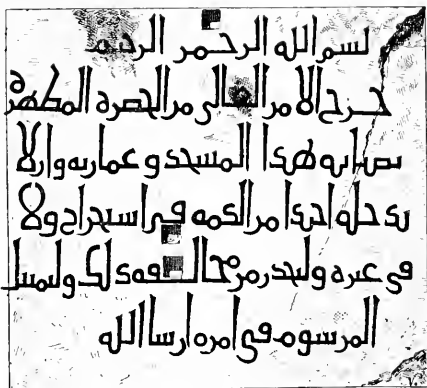 بسم الله الرحمن الرحيم
خرج الامر العالي من الحضرة المطهرة
بصيانة هذا المسجد وعمارته وان لا
يدخله احد من الذمة في استخراج ولا
في غيره وليحذر من مخالفة ذلك وليمتثل
المرسوم في امره ان شا الله